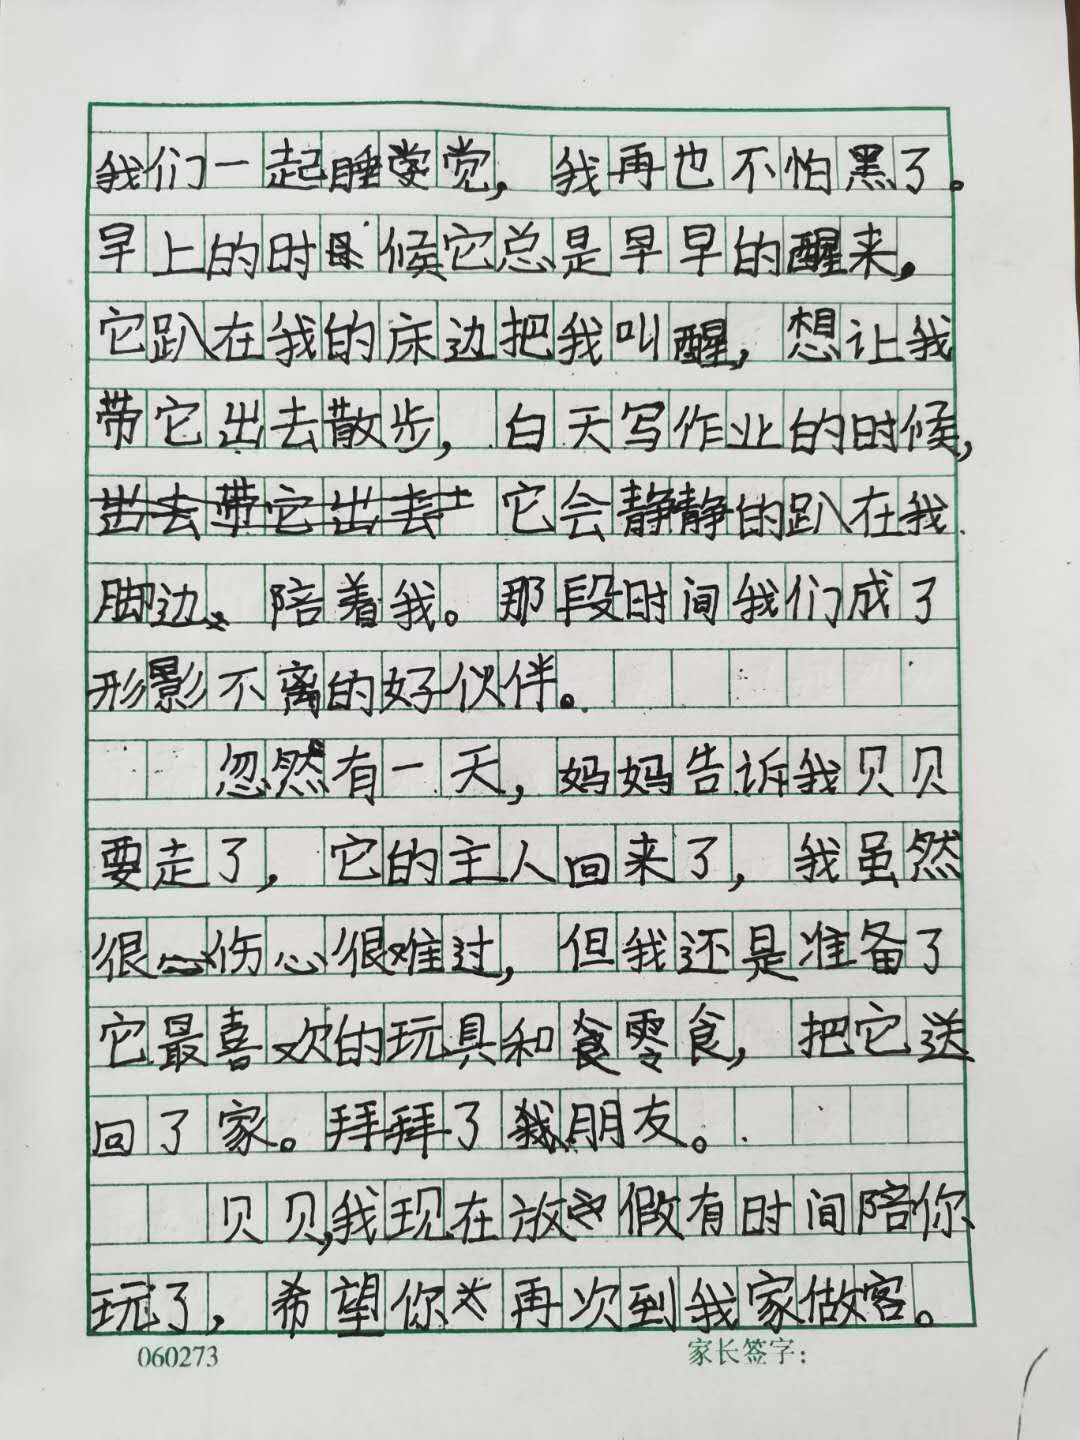 我们一起睡觉，我再也不怕黑了。
早上的时候它总是早早的醒来。
它趴在我的床边把我叫醒，想让我
带它出去散步，白天写作业的时候，
出去带它出去它会静静的趴在我
脚边、陪着我。那段时间我们成了
形影不离的好伙伴。
忽然有一天，妈妈告诉我贝贝
要走了，它的主人回来了，我虽然
很伤心很难过，但我还是准备了
它最喜欢的玩具和零食，把它送
回了家。拜拜了我朋友。
贝贝，我现在放假有时间陪你
玩了，希望你再次到我家做客。
060273
家长签字：